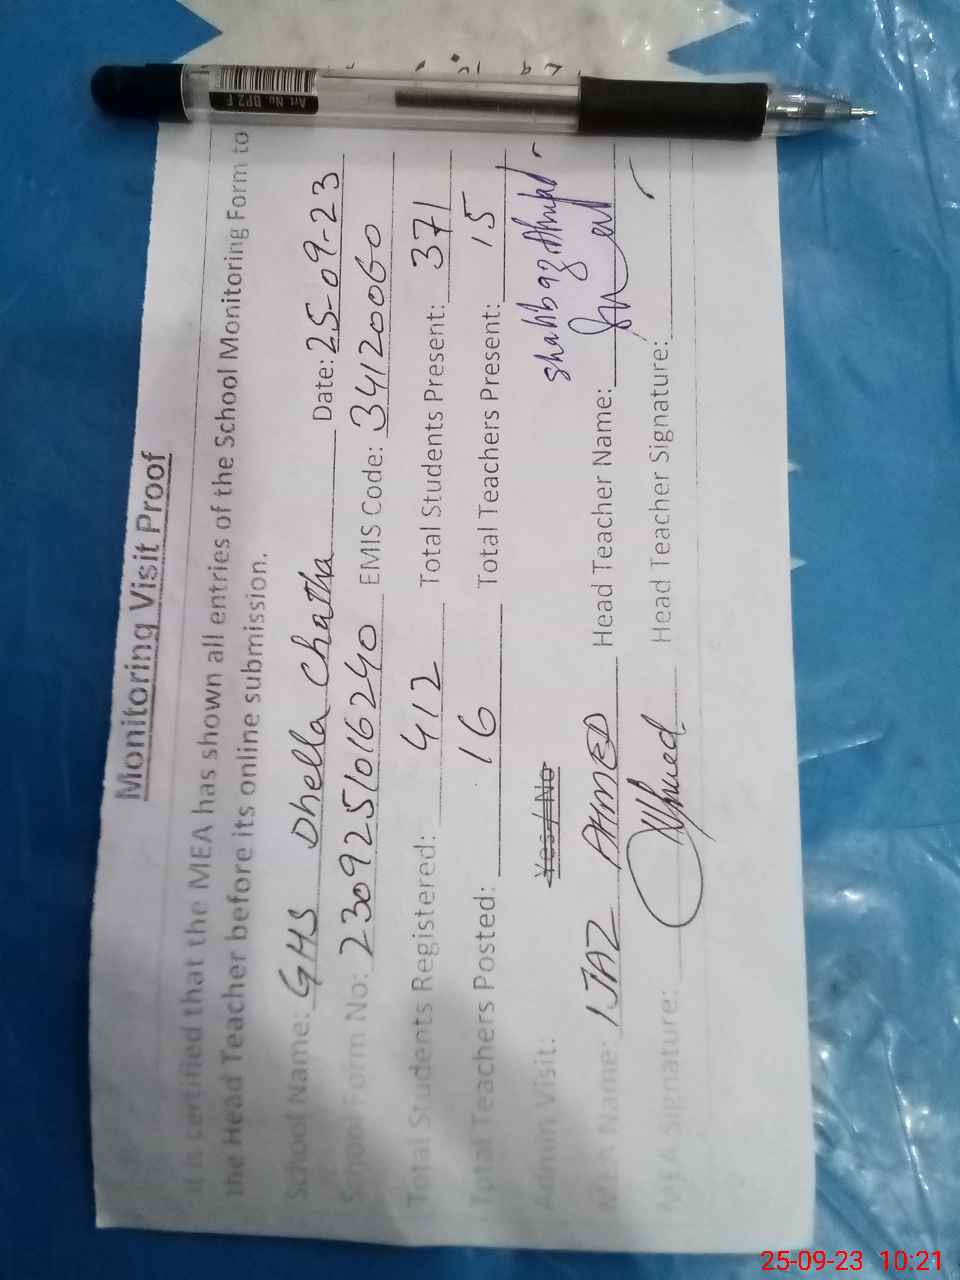 Monitoring Visit Proof
It is certified that the MEA has shown all entries of the School Monitoring Form to
the Head Teacher before its online submission.
School Name: GHS Dhella Chatha Date: 25-09-23
School Form No: 2309251016240 EMIS Code: 34120060
Total Students Registered: 412 Total Students Present: 371
Total Teachers Posted: 16 Total Teachers Present: 15
Admin Visit: Yes / No
Shahbaz Ahmad
MEA Name: IJAZ AHMED Head Teacher Name:
MEA Signature: Ahmed Head Teacher Signature:
Art. No BP2 F
25-09-23 10:21